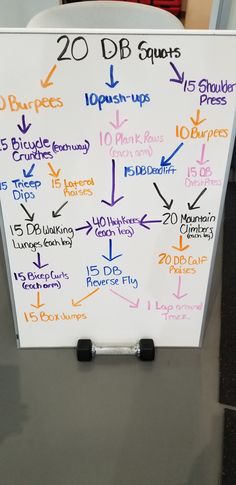 20 DB Squats
Burpees
10 push-ups
15 Shoulder
Press
10 Plank Rows
(each arm)
10 Burpees
Bicycle
Crunches (each way)
15 DB Deadlift
15 DB
Chest Press
15 Tricep
Dips
15 Lateral
Raises
15 DB Walking
Lunges (each leg)
40 High Knees
(each leg)
20 Mountain
Climbers
(each leg)
15 Bicep Curls
(each arm)
15 DB
Reverse Fly
20 DB Calf
Raises
15 Box Jumps
1 Lap around